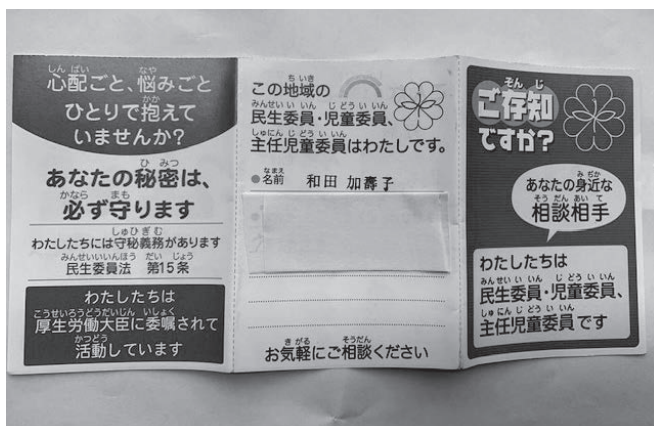 心配ごと、悩みごと
ひとりで抱えて
いませんか?
あなたの秘密は、
必ず守ります
わたしたちには守秘義務があります
民生委員法 第15条
わたしたちは
厚生労働大臣に委嘱されて
活動しています
この地域の
民生委員・児童委員、
主任児童委員はわたしです。
●名前 和田 加壽子
お気軽にご相談ください
ご存知
ですか?
あなたの身近な
相談相手
わたしたちは
民生委員・児童委員、
主任児童委員です